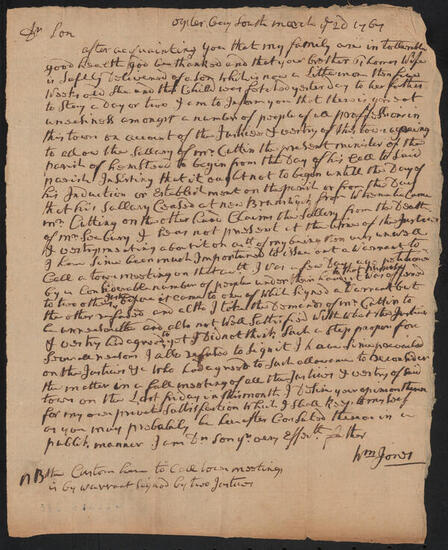 Oyster bay South March ye 2d 1767
Dr Son
after acquainting you that my family are in tollerable
good health god be thanked and that your Brother Thomas's Wife
is Safely Delivered of a Son which is now a little more than five
Weeks old She and the Child was fetched yesterday to her fathers
to Stay a Day or two I am to Inform you that there is great
uneasiness amongst a number of people of all professions in
this town on account of the Justices & vestry of this town agreeing
to allow the Sallery of mr Cuttin the present minister of the
parish of hemstead to begin from the Day of his Call to Said
parish Insisting that it ought not to begin untill the Day of
his Induction or Establishment on the parish or from the Day
that his Sallery Ceased at new Brunswick from Whence he came
mr Cutting on the other hand Claims the Sallery from the Death
of mr Seabury I was not present at the time of the Justices
& vestrys meeting about it on acct of my being Something unwell
I have Since been much Importuned to Issue out a Warrant to
Call a town meeting on that acct I was a few Days ago petitioned
by a Considerable number of people under their hands for that purpose & was offered
to two other Justices it came to one of which Signed a Warrant but
the other refused and altho I take the Demands of mr Cuttin to
be unreasonable and also not well Sattisfied With What the Justices
& vestry had agreed yet I Did not think Such a Step proper for
Several reasons I also refused to Sign it I have Since prevailed
on the Justices &c Who had agreed to Such allowance to reconsider
the matter in a full meeting of all the Justices & vestry of Said
town on the last friday in this month I Desire your opinion thereon
for my own private Sattisfaction Which I Shall keep to my Self
as you may probably be hereafter Consulted thereon in a
publick manner I am Dr Son yor very Affectt father
Wm Jones
NB the Custom here to Call town meetings
is by warrant Signed by two Justices